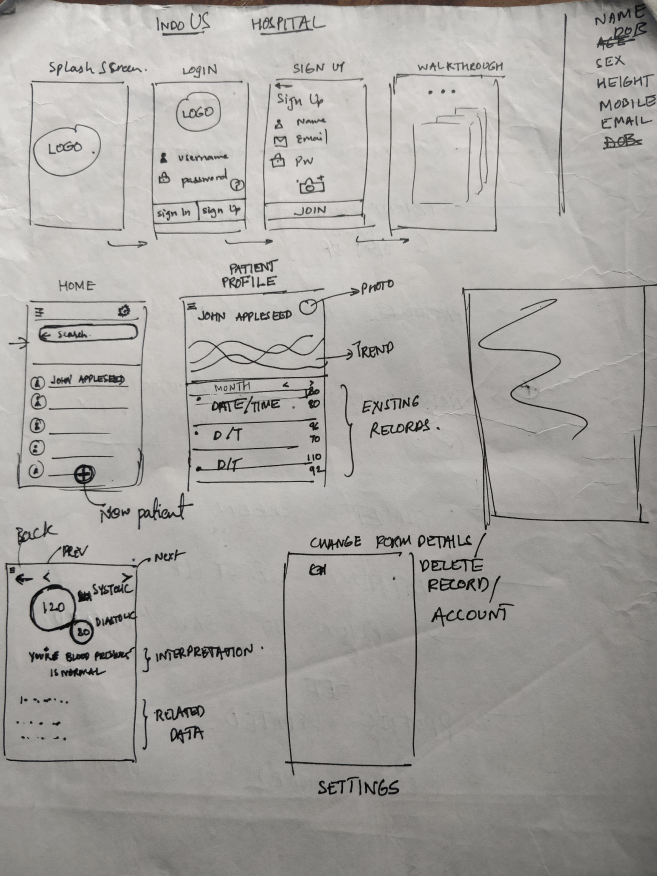 INDO US HOSPITAL
NAME
DOB
AGE
SEX
HEIGHT
MOBILE
EMAIL
DOB
Splash Screen.
LOGIN
SIGN UP
WALKTHROUGH
LOGO
LOGO
username
password ?
sign In | sign Up
Sign Up
Name
Email
PW
JOIN
HOME
Search
JOHN APPLESEED
New patient
PATIENT
PROFILE
JOHN APPLESEED
PHOTO
TREND
MONTH < >
DATE/TIME 80
D/T 96
70
D/T 110
92
EXISTING
RECORDS.
Back
PREV
Next
< >
120 SYSTOLIC
80 DIASTOLIC
IS NORMAL
INTERPRETATION.
RELATED
DATA
CHANGE FORM DETAILS/
DELETE
RECORD/
ACCOUNT
SETTINGS